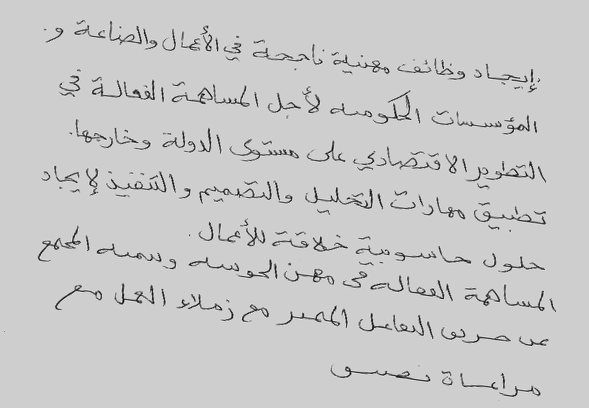 إيجاد وظائف مهنية ناجحة في الأعمال والصناعة و.
المؤسسات الحكوميه لأجل المساهمة الفعالة في
التطوير الاقتصادي على مستوى الدولة وخارجها.
تطبيق مهارات التحليل والتصميم والتنفيذ لإيجاد
حلول حاسوبية خلاقة للأعمال.
المساهمة الفعاله في مهن الحوسبه وتنميه المجتمع
عن طريق التفاعل المميز مع زملاء العمل مع
مراعاة